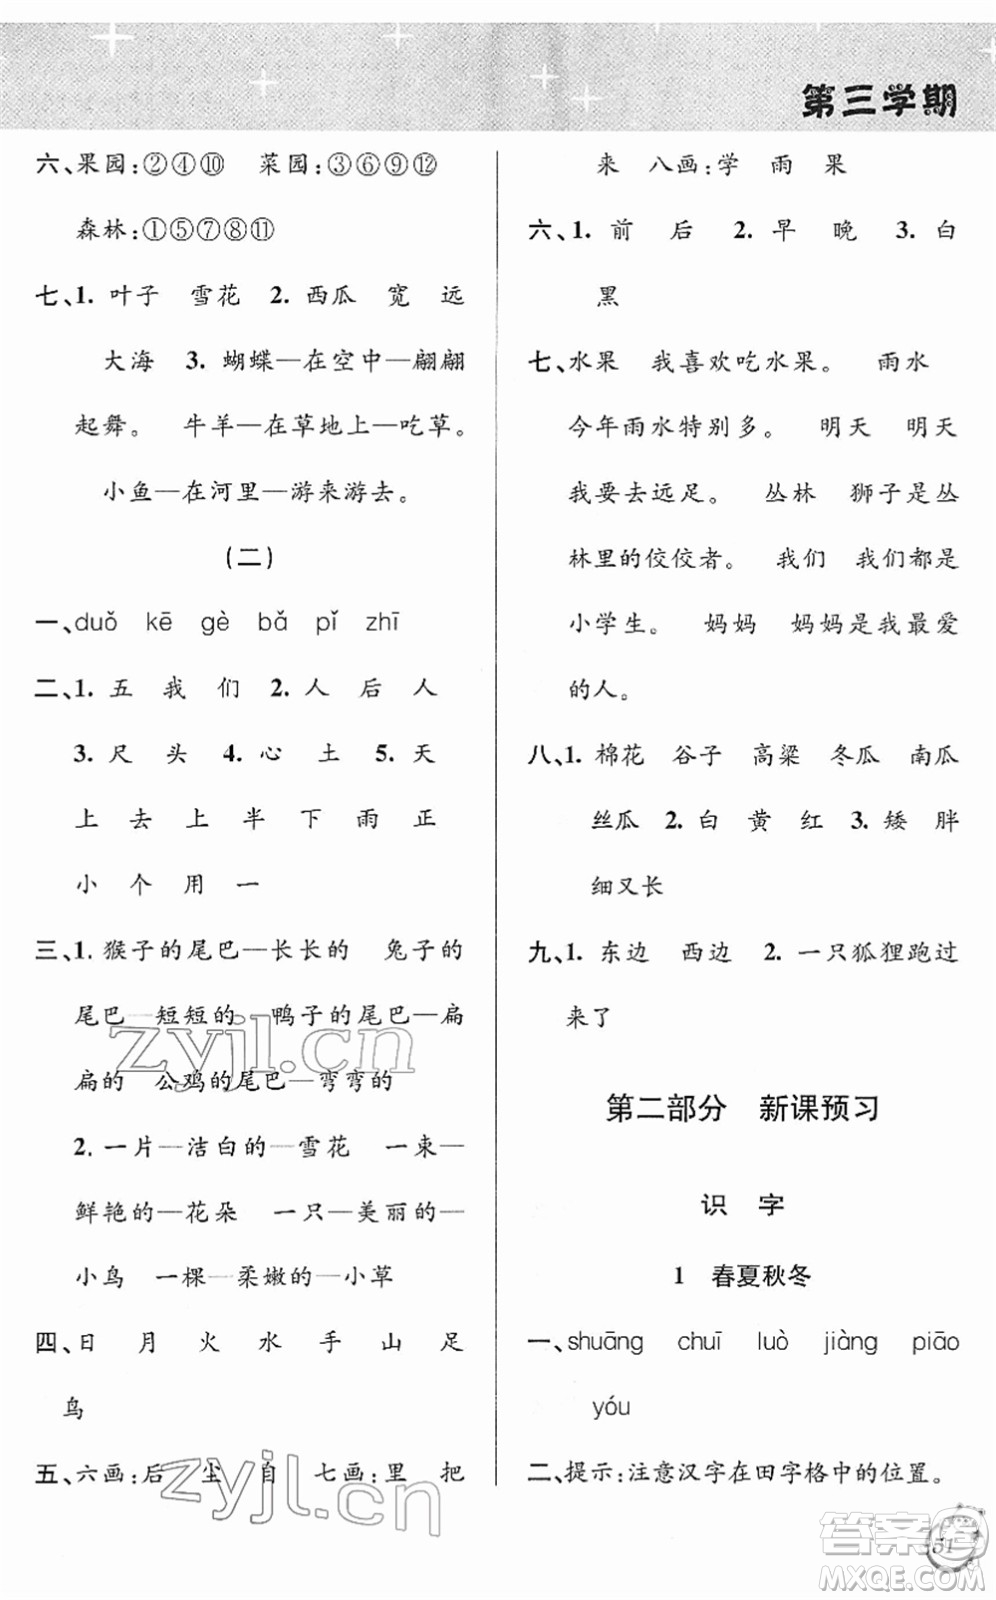 第三学期
六、果园:②④⑩ 菜园:③⑥⑨⑫
森林:①⑤⑦⑧⑪
七、1. 叶子 雪花 2. 西瓜 宽 远
大海 3. 蝴蝶—在空中—翩翩
起舞。 牛羊—在草地上—吃草。
小鱼—在河里—游来游去。
(二)
一、duǒ kē gè bǎ pǐ zhī
二、1. 五 我 们 2. 人 后 人
3. 尺 头 4. 心 土 5. 天
上 去 上 半 下 雨 正
小 个 用 一
三、1. 猴子的尾巴—长长的 兔子的
尾巴—短短的 鸭子的尾巴—扁
扁的 公鸡的尾巴—弯弯的
2. 一片—洁白的—雪花 一束—
鲜艳的—花朵 一只—美丽的—
小鸟 一棵—柔嫩的—小草
四、日 月 火 水 手 山 足
鸟
五、六画:后 尘 自 七画:里 把
来 八画:学 雨 果
六、1. 前 后 2. 早 晚 3. 白
黑
七、水果 我喜欢吃水果。 雨水
今年雨水特别多。 明天 明天
我要去远足。 丛林 狮子是丛
林里的佼佼者。 我们 我们都是
小学生。 妈妈 妈妈是我最爱
的人。
八、1. 棉花 谷子 高粱 冬瓜 南瓜
丝瓜 2. 白 黄 红 3. 矮 胖
细又长
九、1. 东边 西边 2. 一只狐狸跑过
来了
第二部分 新课预习
识 字
1 春夏秋冬
一、shuāng chuī luò jiàng piāo
yóu
二、提示:注意汉字在田字格中的位置。
51
zyjl.cn
zyjl.cn
答案圈
MXQE.COM